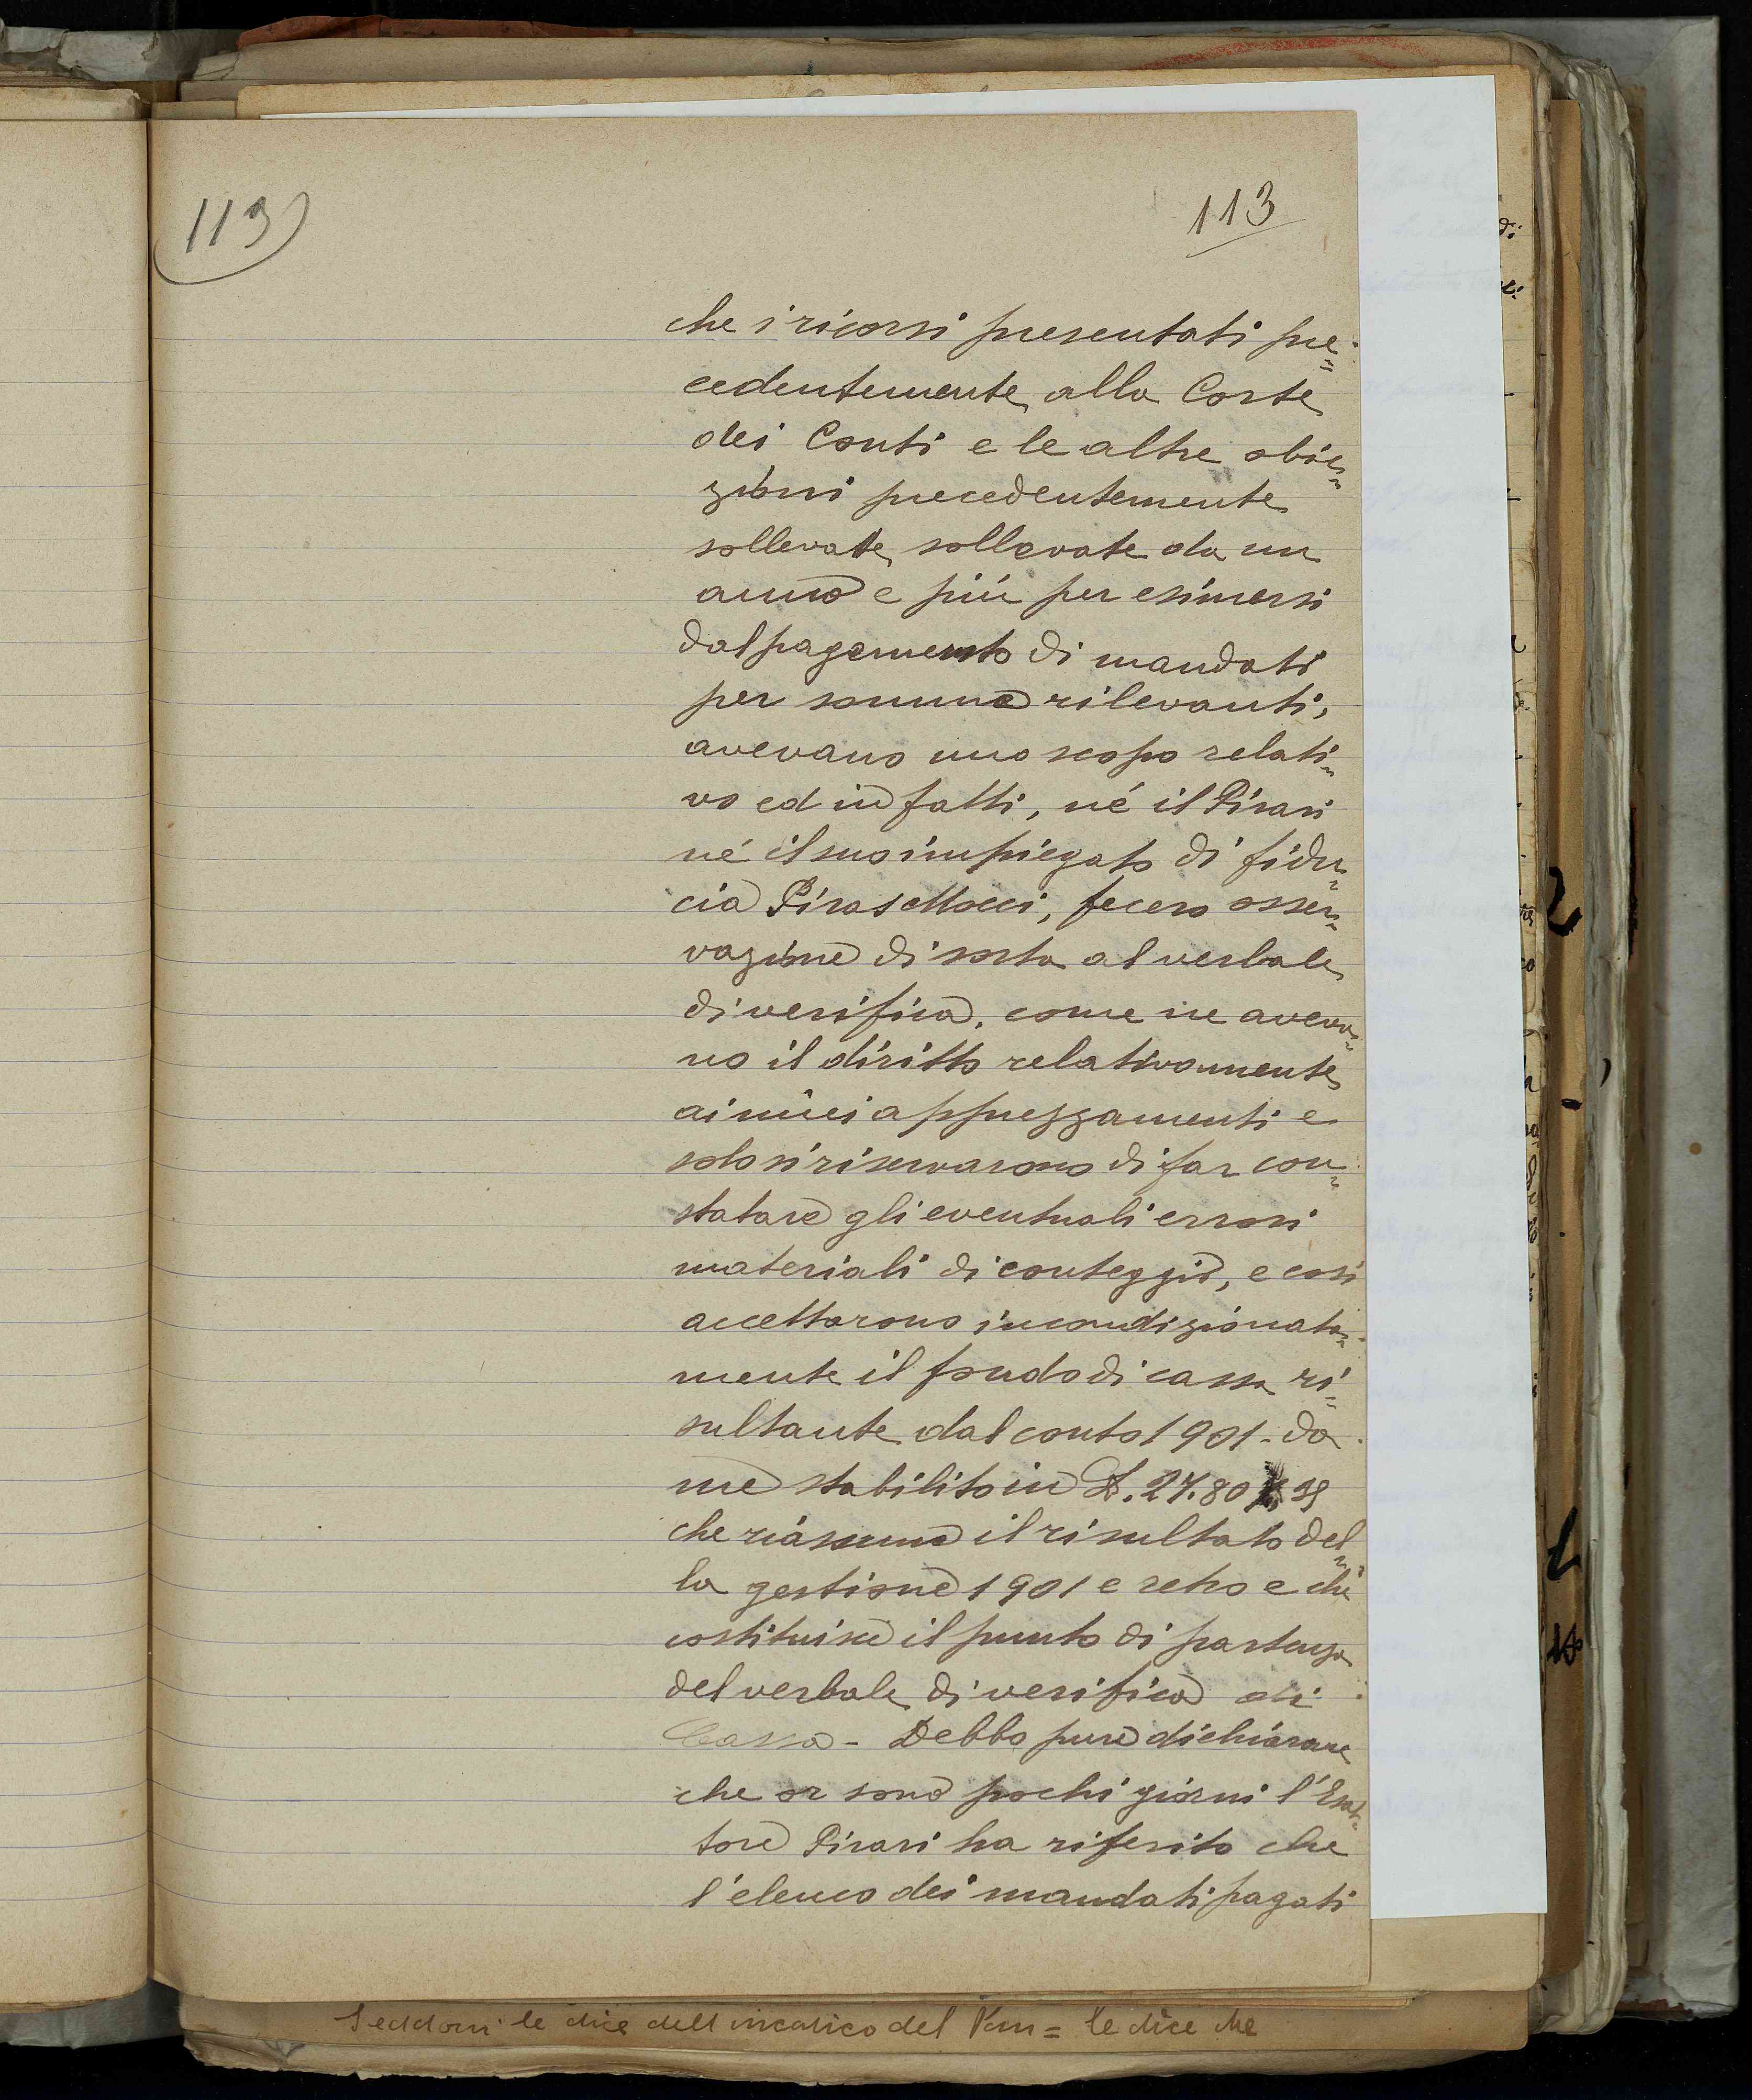 113)
113
che i ricorsi presentati pre=
cedentemente alla Corte
dei Conti e le altre obie=
zioni precedentemente
sollevate sollevate da un
anno e più per esimersi
dal pagamento di mandati
per somme rilevanti,
avevano uno scopo relati=
vo ed in fatti, né il Pirari
né il suo impiegato di fidu=
cia Piras Mocci, fecero osser=
vazione di sorta al verbale
di verifica, come ne aveva=
no il diritto relativamente
ai miei apprezzamenti e
solo si riservarono di far con=
statare gli eventuali errori
materiali di conteggio, e così
accettarono incondizionata=
mente il fondo di cassa ri=
sultante dal conto 1901 - da
me stabilito in £. 27.80
che riassume il risultato del=
la gestione 1901 e retro e che
costituisce il punto di partenza
del verbale di verifica di
Cassa - Debbo pure dichiarare
che or sono pochi giorni l'Esat=
tore Pirari ha riferito che
l'elenco dei mandati pagati
Seddoni le dice dell'incarico del = le dice che